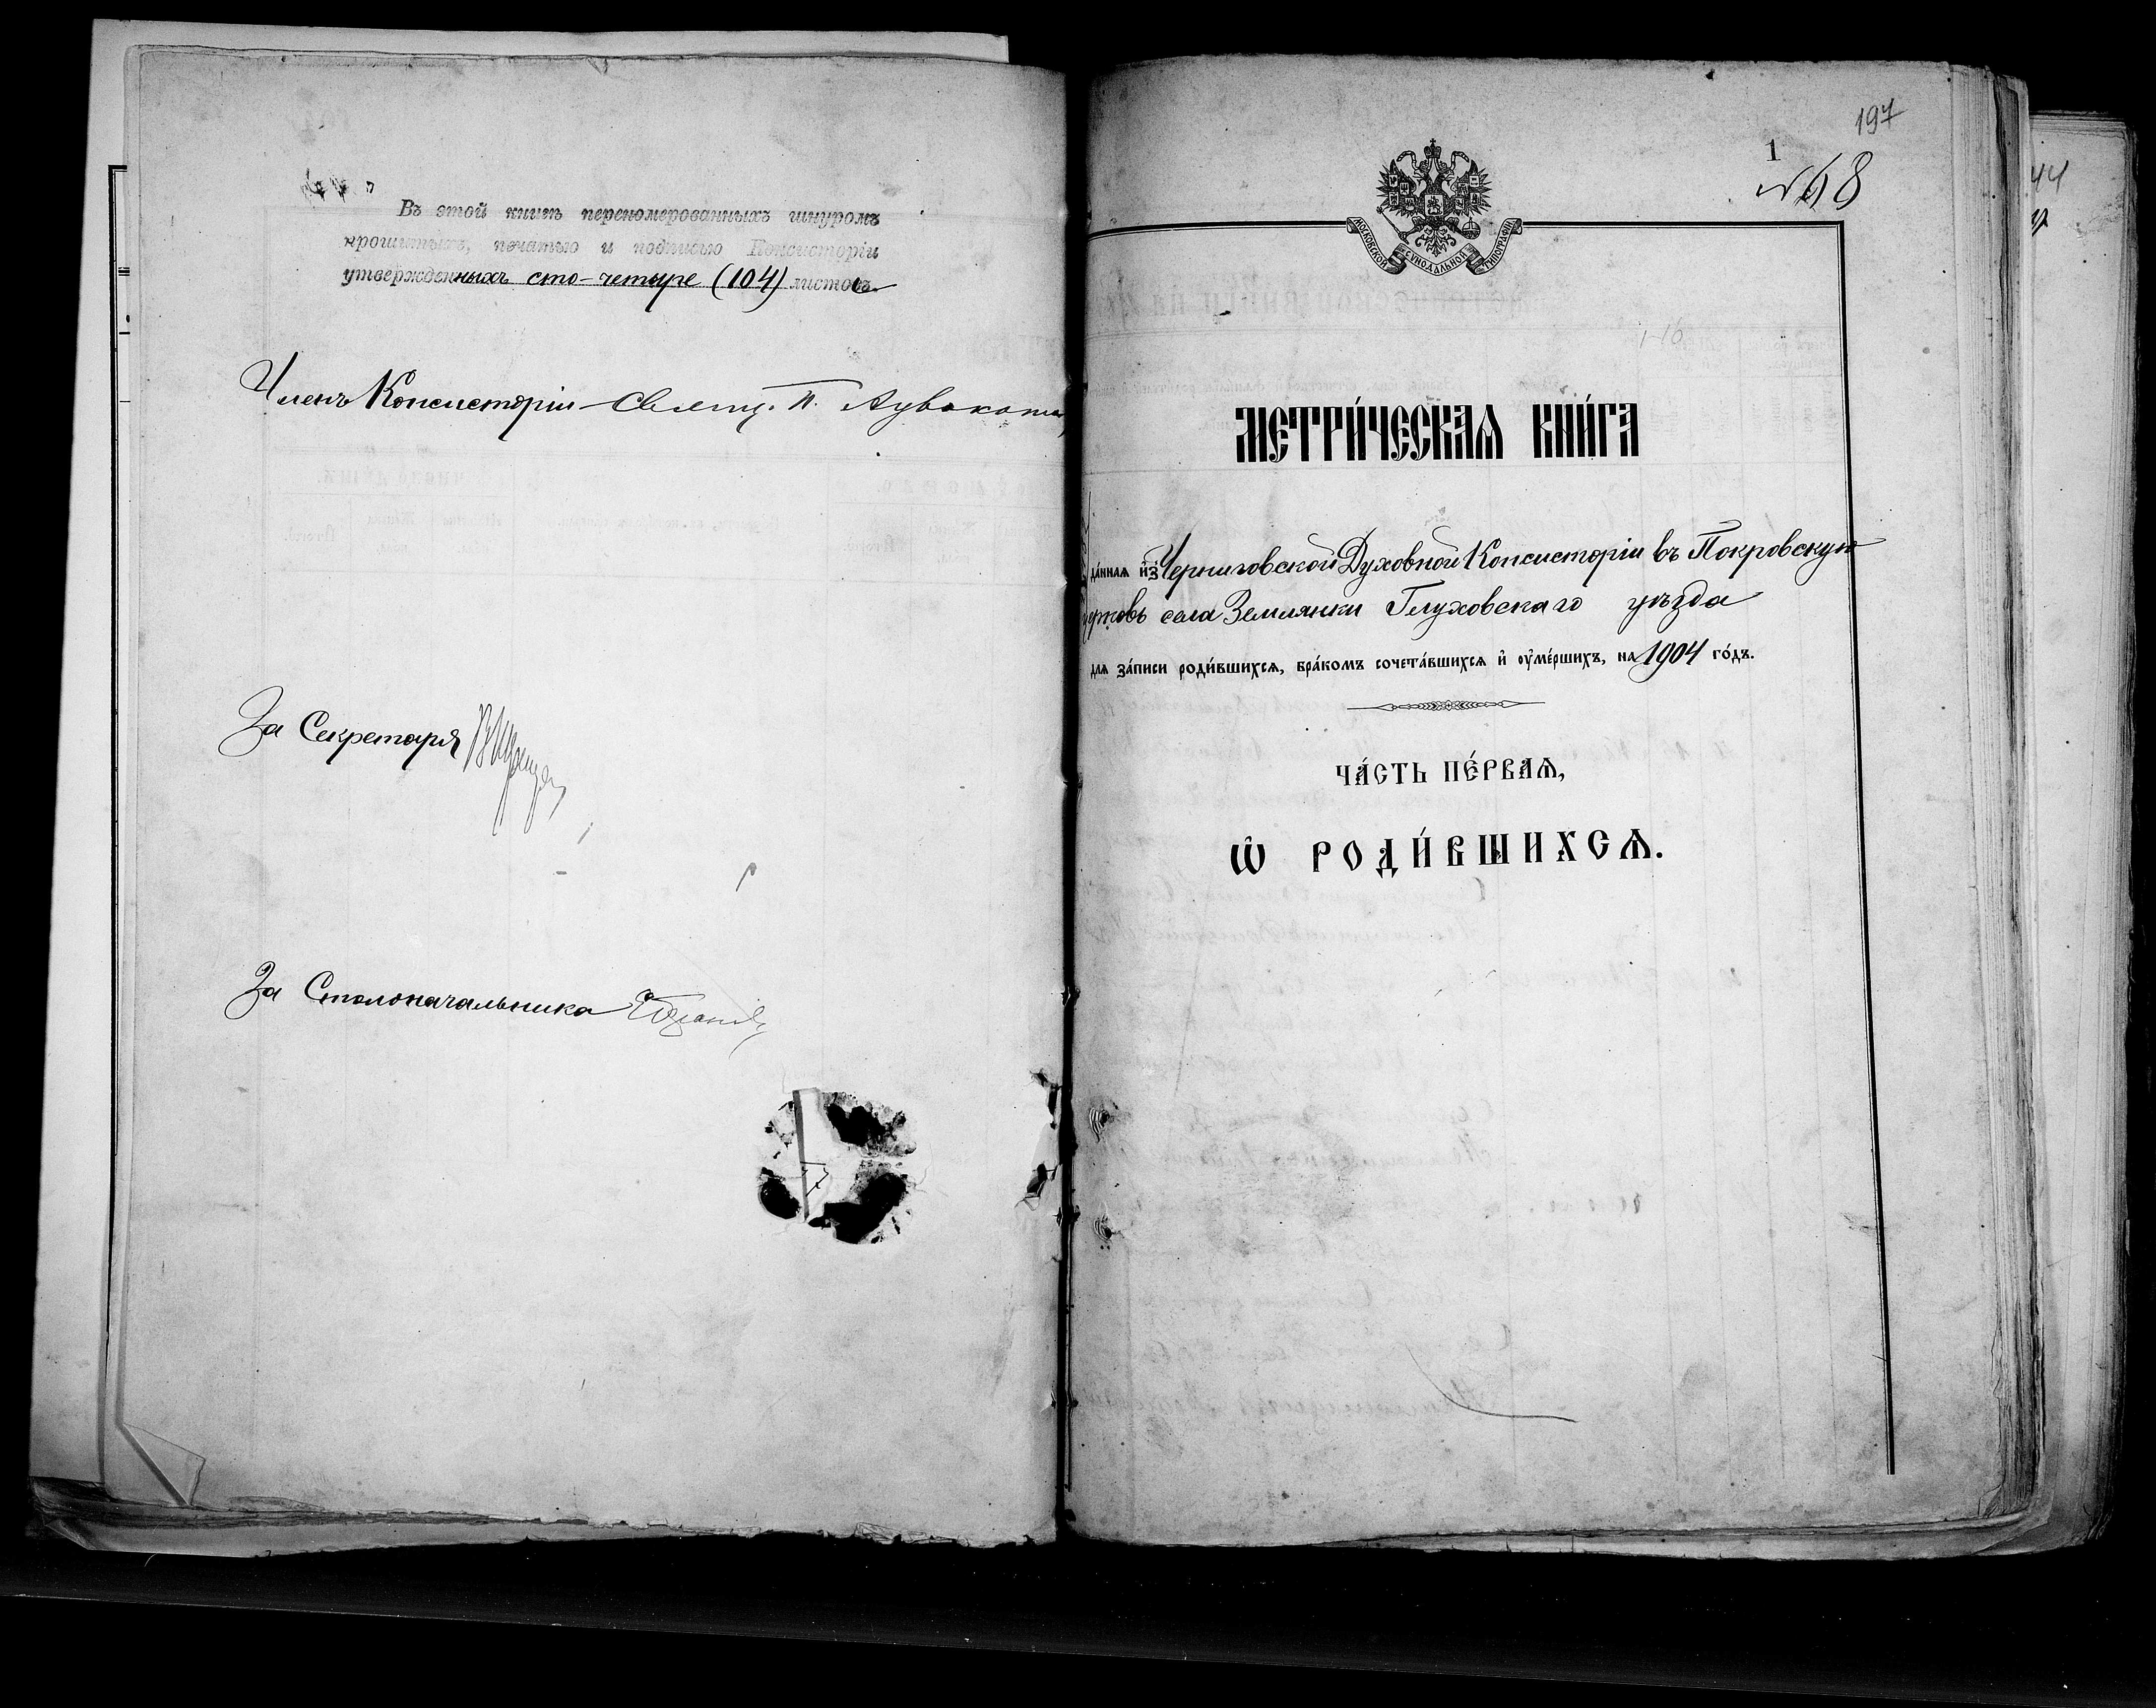 Въ этой книгѣ перономерованныхъ шнуромъ
прошитыхъ, печатью и подписью Консисторіи
утвержденныхъ сто-четыре (104) листовъ
Членъ Консисторіи Священ. П.
За Секретаря
За Столоначальника
197
1
№ 68
МОСКОВСКОЙ СѴНОДАЛЬНОЙ ТИПОГРАФІИ
1-16
МЕТРИ́ЧЕСКАѦ КНИ́ГА
да́ннаѧ и҆з̾ Черниговской Духовной Консисторіи въ Покровскую
церковь села Землянки Глуховскаго уѣзда
для за́писи роди́вшихсѧ, бра́комъ сочета́вшихсѧ и҆ оу҆ме́ршихъ, на 1904 го́дъ.
ЧА́СТЬ ПЕ́РВАѦ,
Ѡ҆ РОДИ́ВШИХСѦ.
44